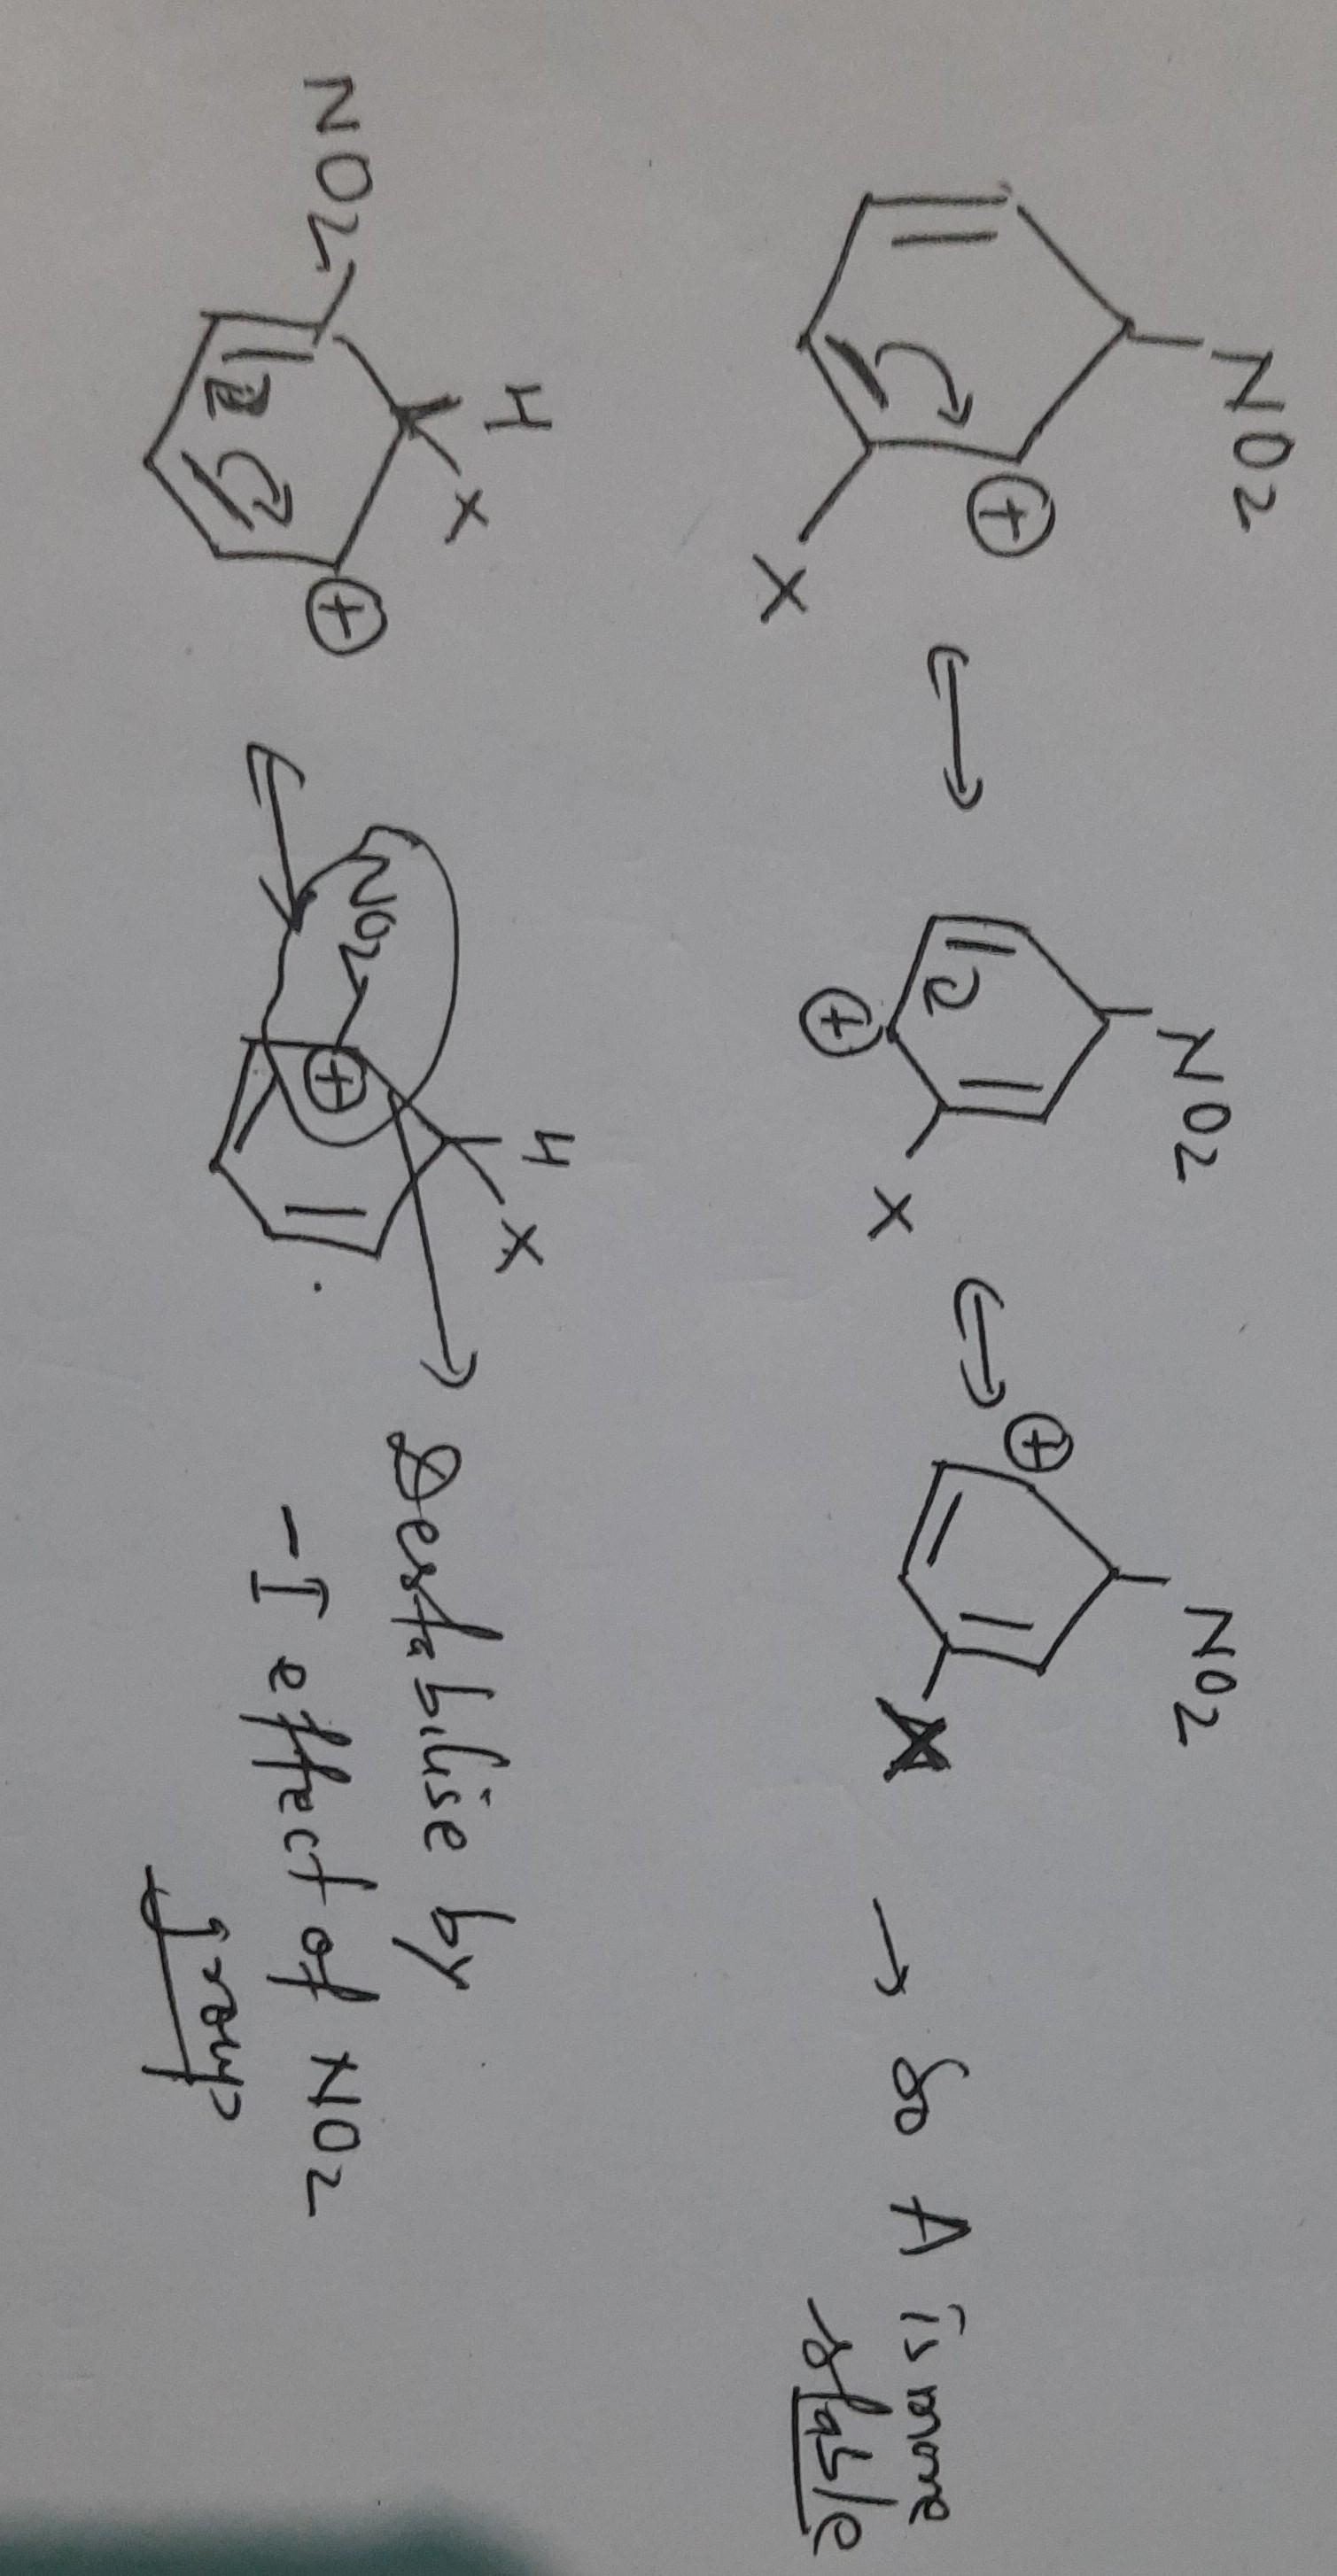 NO2 NO2 NO2
⊕ ⊕ ⊕
X X X → so A is more
stable
H H
X X
NO2 NO2 Destabilise by
⊕ ⊕ -I effect of NO2
group